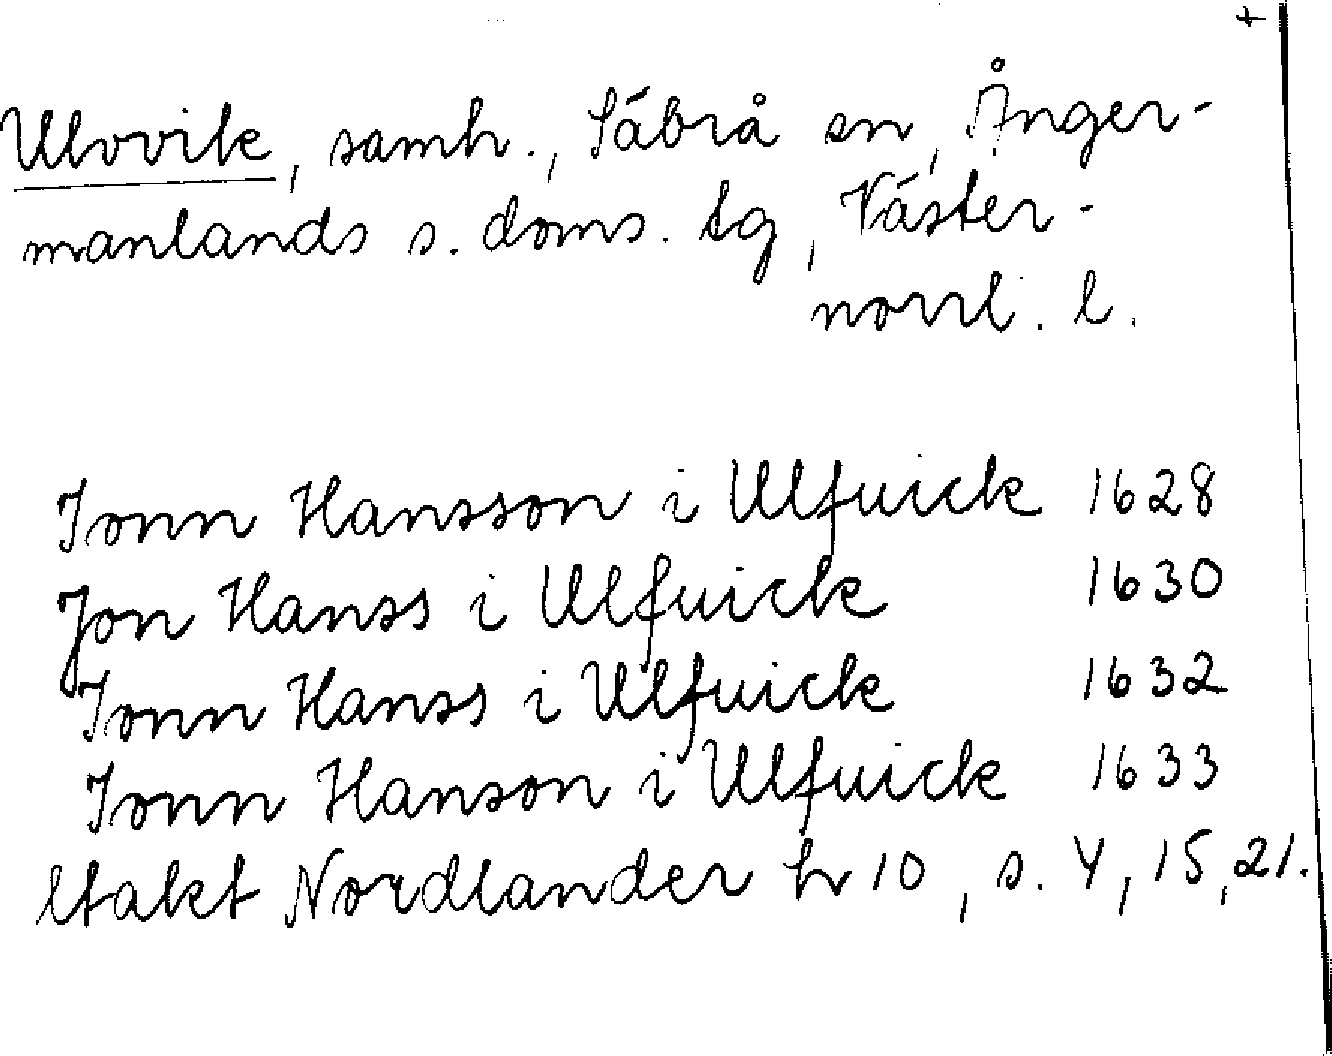 +
Ulvvik, samh., Säbrå sn, Ånger-
manlands s. doms. tg, Väster-
norrl. l.
Jonn Hansson i Ulfuick 1628
Jon Hanss i Ulfuick 1630
Jonn Hanss i Ulfuick 1632
Jonn Hanson i Ulfuick 1633
Utakt Nordlander hr 10, s. 4, 15, 21.